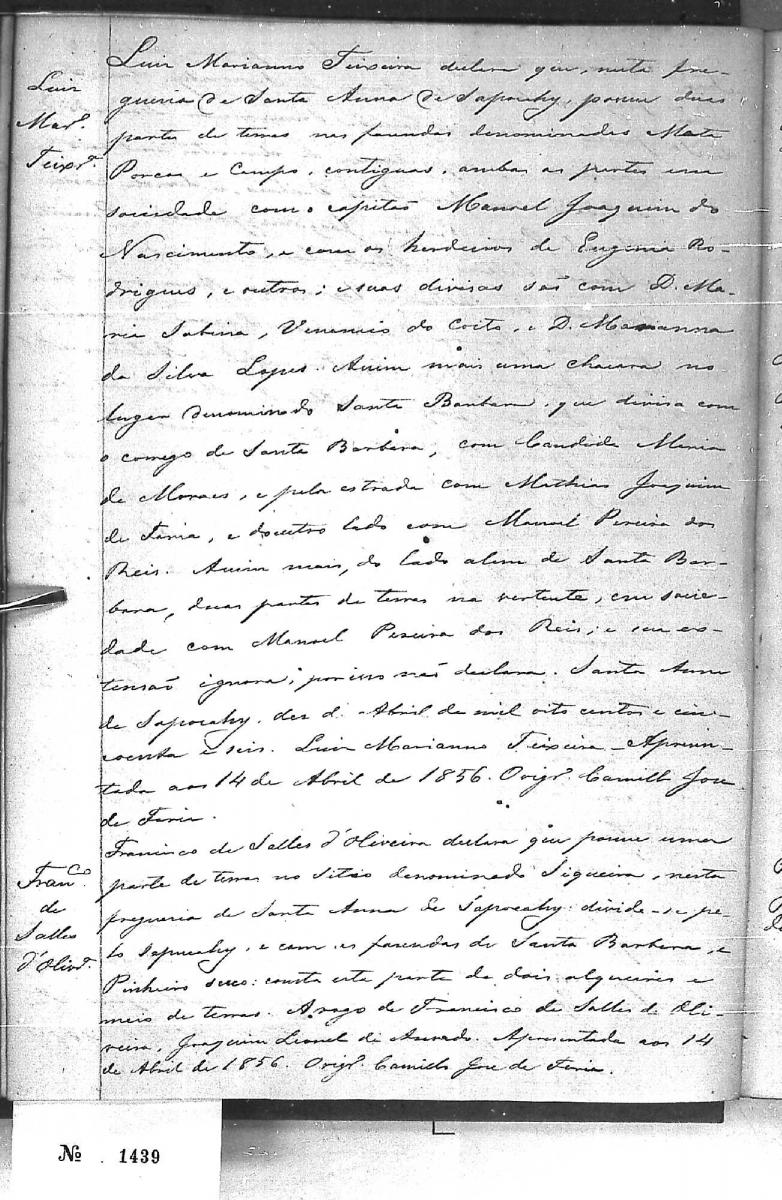 Luis
Mar.º
Teixr.ª
Luis Marianno Teixeira declara que, nesta fre-
guesia de Santa Anna de Sapocahy, possue duas
partes de terras nas fasendas denominadas Mata
Porcas e Campo, contiguas, ambas as partes em
sociedade com o capitão Manoel Joaquim do
Nascimento, e com os herdeiros de Eugenia Ro-
drigues, e outros; e suas divisas são com D. Ma-
ria Sabina, Venancio do Coito, e D. Marianna
da Silva Lopes. Assim mais uma chacara no
lugar denominado Santa Barbara, que divisa com
o corrego de Santa Barbara, com Candida Maria
de Moraes, e pela estrada com Mathias Joaquim
de Faria, e doutro lado com Manoel Pereira dos
Reis. Assim mais, do lado alem de Santa Bar-
bara, duas partes de terras na vertente, em socie-
dade com Manoel Pereira dos Reis; e seu ex-
tensão ignora; por isso não declara. Santa Anna
de Sapocahy, des d. Abril de mil oito centos e cin-
coenta e seis. Luis Marianno Teixeira - Apresen-
tada aos 14 de Abril de 1856. Origr. Camillo Jose
de Faria.
Fran.co
de
Salles
d'Olivr.ª
Francisco de Salles d'Oliveira declara que possue uma
parte de terras no Sitio denominado Siqueira, nesta
freguesia de Santa Anna de Sapocahy: divide-se pe-
lo Sapucahy, e com as fasendas de Santa Barbara, e
Pinheiro seco: consta esta parte de dois alqueires e
meio de terras. A rogo de Francisco de Salles de Oli-
veira, Joaquim Leonel de Asevedo. Apresentada aos 14
de Abril de 1856. Origr. Camillo Jose de Faria.
Nº 1439